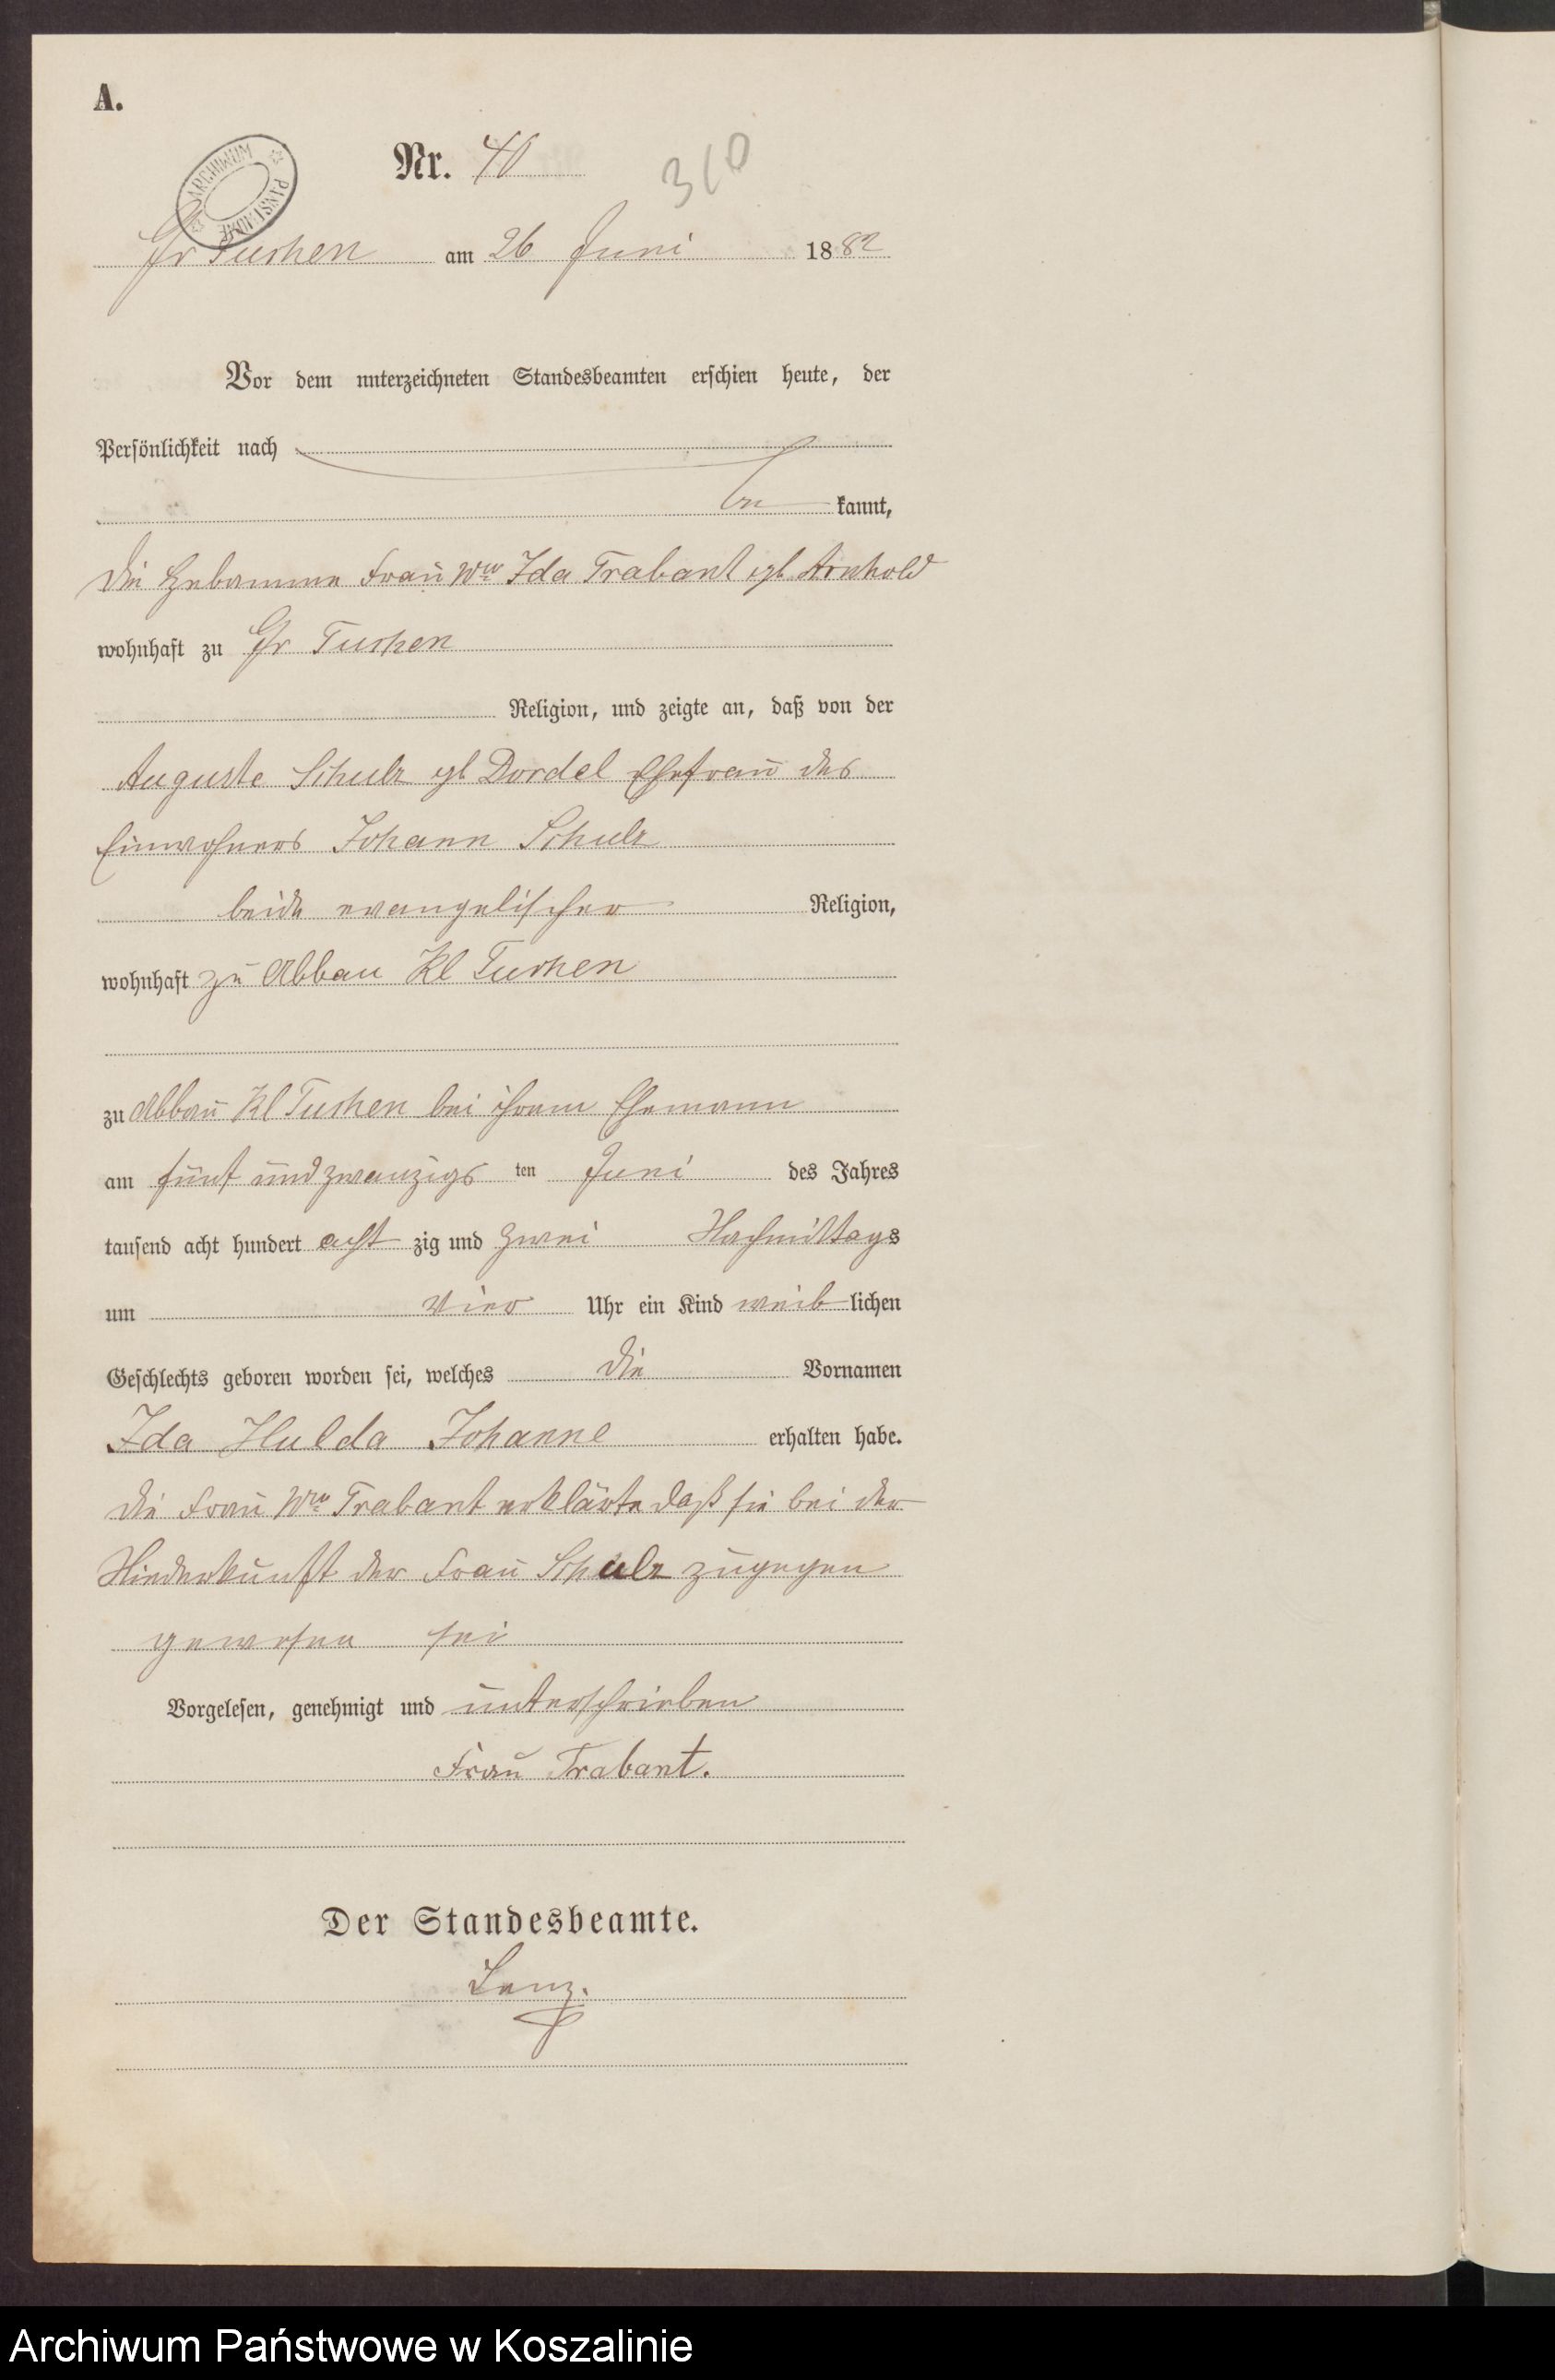 A.
Nr. 40
310
ARCHIWUM PAŃSTWOWE
Gr Tuchen am 26 Juni 1882
Vor dem unterzeichneten Standesbeamten erschien heute, der
Persönlichkeit nach
be kannt,
die Hebamme Frau Ww Ida Trabant gb Arnhold
wohnhaft zu Gr Tuchen
Religion, und zeigte an, daß von der
Auguste Schulz gb Dordel Ehefrau des
Einwohners Johann Schulz
beide evangelischer Religion,
wohnhaft zu Abbau Kl Tuchen
zu Abbau Kl Tuchen bei ihrem Ehemann
am fünf und zwanzigs ten Juni des Jahres
tausend acht hundert acht zig und zwei Nachmittags
um vier Uhr ein Kind weib lichen
Geschlechts geboren worden sei, welches die Vornamen
Ida Hulda Johanne erhalten habe.
Die Frau Ww Trabant erklärte daß sie bei der
Niederkunft der Frau Schulz zugegen
gewesen sei
Vorgelesen, genehmigt und unterschrieben
Frau Trabant.
Der Standesbeamte.
Lenz.
Archiwum Państwowe w Koszalinie